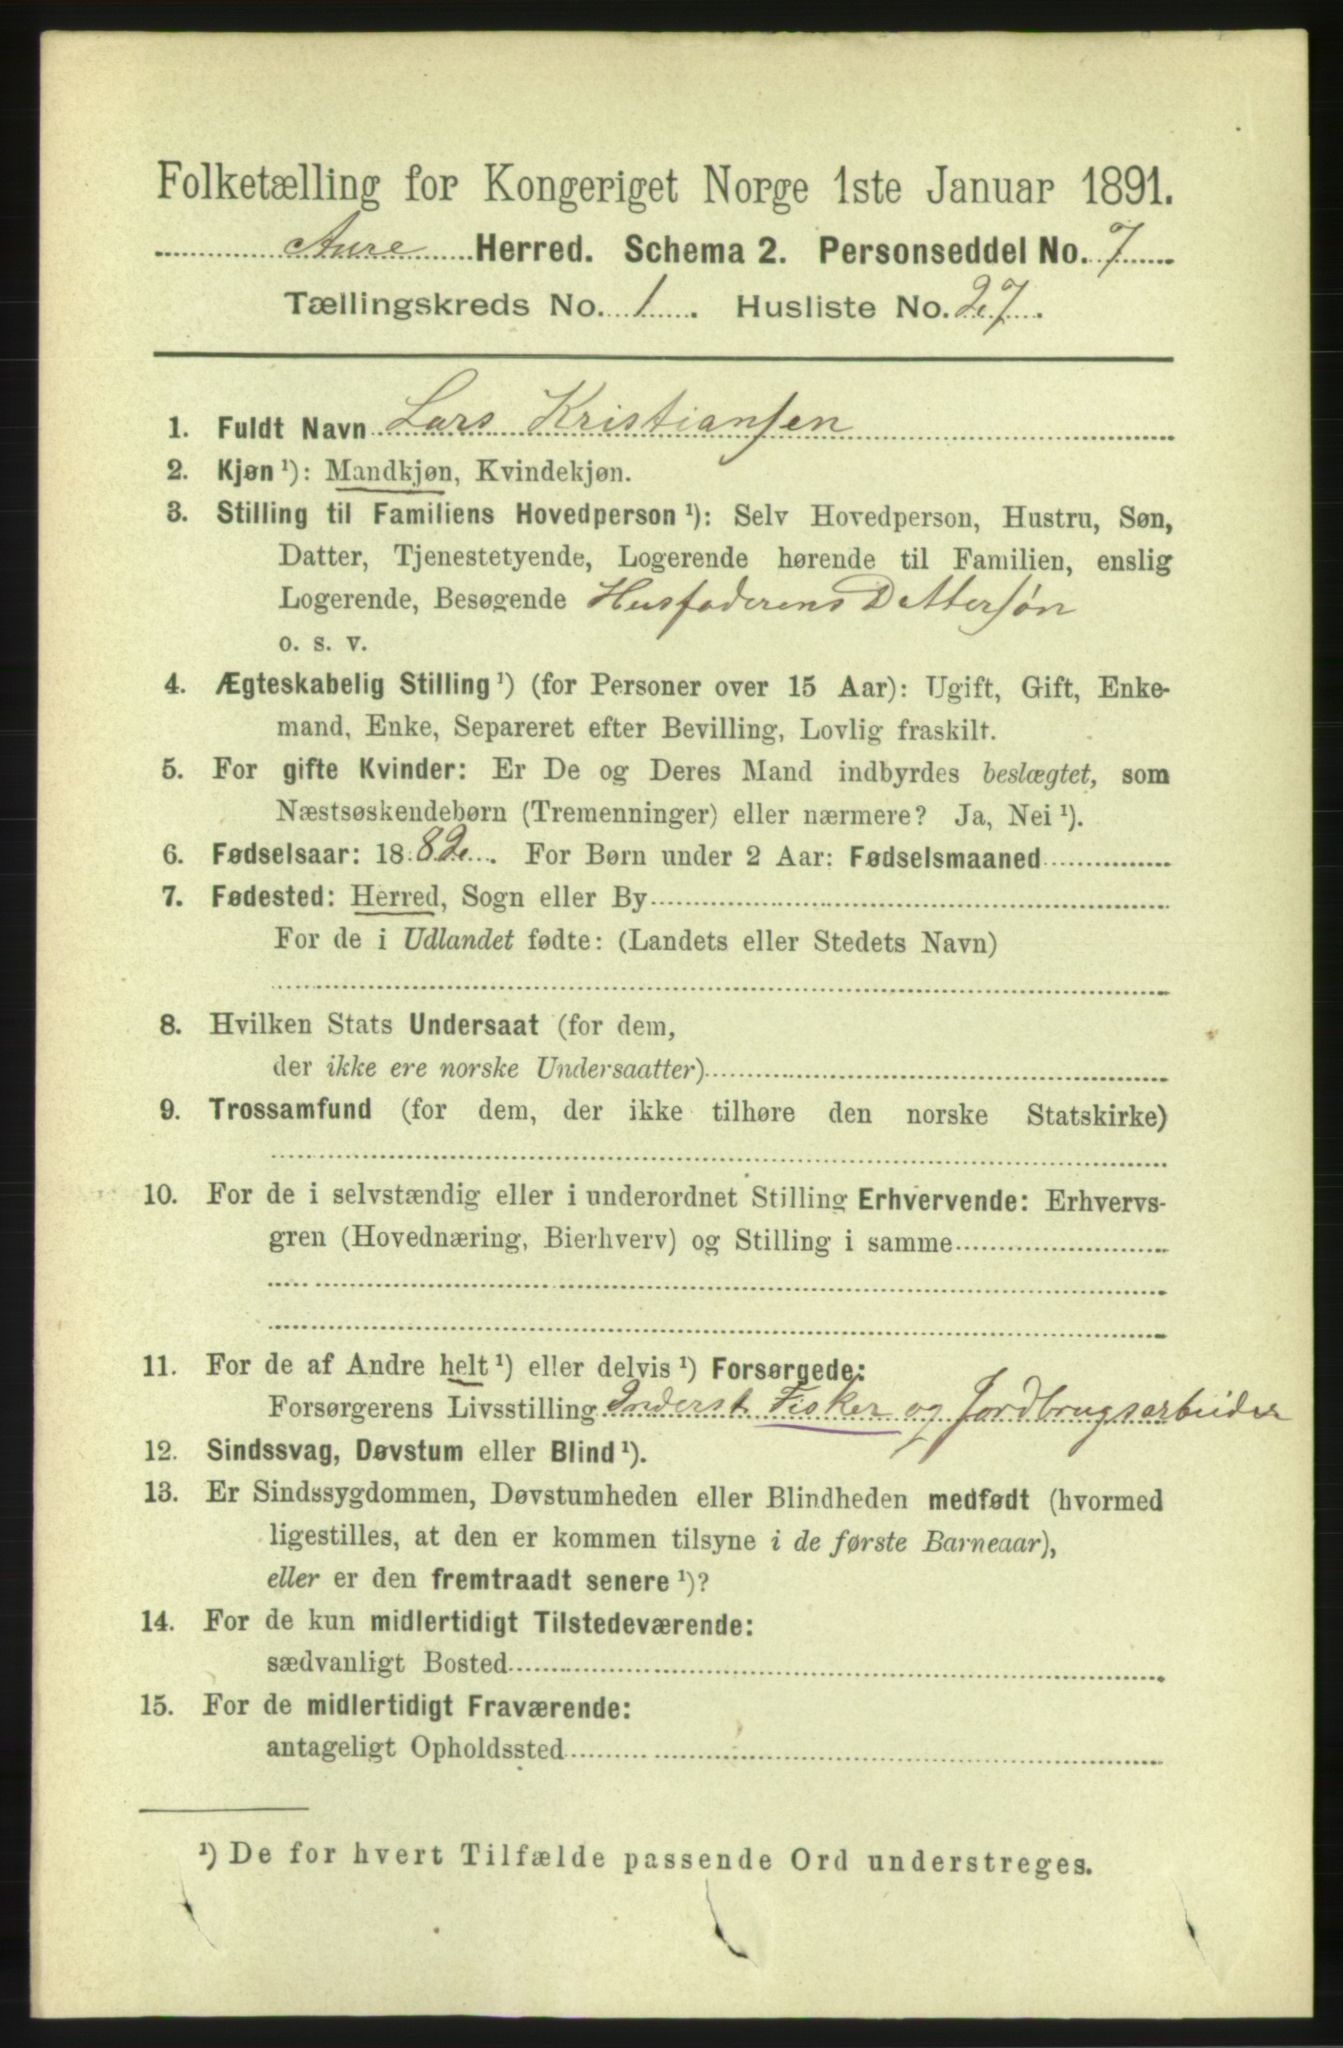 Folketælling for Kongeriget Norge 1ste Januar 1891.
Aure Herred. Schema 2. Personseddel No. 7
Tællingskreds No. 1. Husliste No. 27.
1. Fuldt Navn Lars Kristiansen
2. Kjøn ¹): Mandkjøn, Kvindekjøn.
3. Stilling til Familiens Hovedperson ¹): Selv Hovedperson, Hustru, Søn,
Datter, Tjenestetyende, Logerende hørende til Familien, enslig
Logerende, Besøgende Husfaderens Dattersøn
o. s. v.
4. Ægteskabelig Stilling ¹) (for Personer over 15 Aar): Ugift, Gift, Enke-
mand, Enke, Separeret efter Bevilling, Lovlig fraskilt.
5. For gifte Kvinder: Er De og Deres Mand indbyrdes beslægtet, som
Næstsøskendebørn (Tremenninger) eller nærmere? Ja, Nei ¹).
6. Fødselsaar: 1882. For Børn under 2 Aar: Fødselsmaaned
7. Fødested: Herred, Sogn eller By
For de i Udlandet fødte: (Landets eller Stedets Navn)
8. Hvilken Stats Undersaat (for dem,
der ikke ere norske Undersaatter)
9. Trossamfund (for dem, der ikke tilhøre den norske Statskirke)
10. For de i selvstændig eller i underordnet Stilling Erhvervende: Erhvervs-
gren (Hovednæring, Bierhverv) og Stilling i samme
11. For de af Andre helt ¹) eller delvis ¹) Forsørgede:
Forsørgerens Livsstilling Inderst Fisker og Jordbrugsarbeider
12. Sindssvag, Døvstum eller Blind ¹).
13. Er Sindssygdommen, Døvstumheden eller Blindheden medfødt (hvormed
ligestilles, at den er kommen tilsyne i de første Barneaar),
eller er den fremtraadt senere ¹)?
14. For de kun midlertidigt Tilstedeværende:
sædvanligt Bosted
15. For de midlertidigt Fraværende:
antageligt Opholdssted
¹) De for hvert Tilfælde passende Ord understreges.